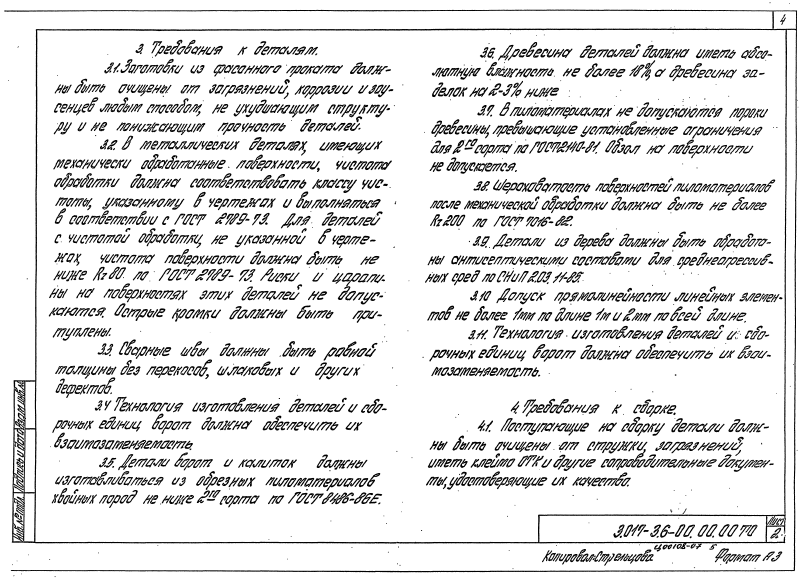 4
3. Требования к деталям.
3.1. Заготовки из фасонного проката долж-
ны быть очищены от загрязнений, коррозии и зау-
сенцев любым способом, не ухудшающим структу-
ру и не понижающим прочность деталей.
3.2. В металлических деталях, имеющих
механически обработанные поверхности, чистота
обработки должна соответствовать классу чис-
тоты, указанному в чертежах и выполняться
в соответствии с ГОСТ 2789-73. Для деталей
с чистотой обработки, не указанной в черте-
жах, чистота поверхности должна быть не
ниже Rz 80 по ГОСТ 2789-73. Риски и царапи-
ны на поверхностях этих деталей не допус-
каются. Острые кромки должны быть при-
туплены.
3.3. Сварные швы должны быть равной
толщины без перекосов, шлаковых и других
дефектов.
3.4 Технология изготовления деталей и сбо-
рочных единиц ворот должна обеспечить их
взаимозаменяемость
3.5. Детали ворот и калиток должны
изготавливаться из обрезных пиломатериалов
хвойных пород не ниже 2го сорта по ГОСТ 8486-86Е.
3.6. Древесина деталей должна иметь абсо-
лютную влажность не более 18%, а древесина за-
делок на 2-3% ниже
3.7. В пиломатериалах не допускаются пороки
древесины, превышающие установленные ограничения
для 2го сорта по ГОСТ 2140-81. Обзол на поверхности
не допускается.
3.8. Шероховатость поверхностей пиломатериалов
после механической обработки должна быть не более
Rz 200 по ГОСТ 7016-82.
3.9. Детали из дерева должны быть обработа-
ны антисептическими составами для среднеагрессив-
ных сред по СНиП 2.03.11-85.
3.10 Допуск прямолинейности линейных элемен-
тов не более 1мм по длине 1м и 2мм по всей длине.
3.11. Технология изготовления деталей и сбо-
рочных единиц ворот должна обеспечить их взаи-
мозаменяемость.
4. Требования к сборке.
4.1. Поступающие на сборку детали долж-
ны быть очищены от стружки, загрязнений,
иметь клеймо ОТК и другие сопроводительные докумен-
ты, удостоверяющие их качество.
Инв. № подл. Подпись и дата Взам. инв. №
3.017-3.6-00.00.00 ТО
Лист
2
Копировал: Стренцова
Ц00108-07 5
Формат А3